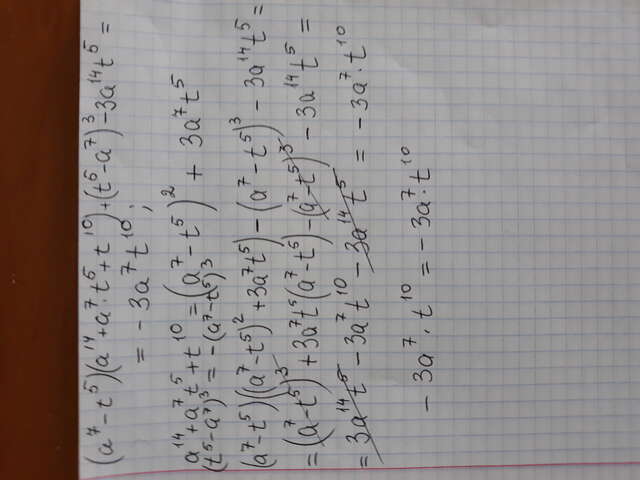 (a⁷-t⁵)(a¹⁴+a⁷·t⁵+t¹⁰)+(t⁵-a⁷)³-3a¹⁴t⁵=
= -3a⁷t¹⁰;
a¹⁴+a⁷t⁵+t¹⁰=(a⁷-t⁵)²+3a⁷t⁵
(t⁵-a⁷)³=-(a⁷-t⁵)³
(a⁷-t⁵)((a⁷-t⁵)²+3a⁷t⁵)-(a⁷-t⁵)³-3a¹⁴t⁵=
=(a⁷-t⁵)³+3a⁷t⁵(a⁷-t⁵)-(a⁷-t⁵)³-3a¹⁴t⁵=
=3a¹⁴t⁵-3a⁷t¹⁰-3a¹⁴t⁵=-3a⁷·t¹⁰
-3a⁷·t¹⁰=-3a⁷·t¹⁰